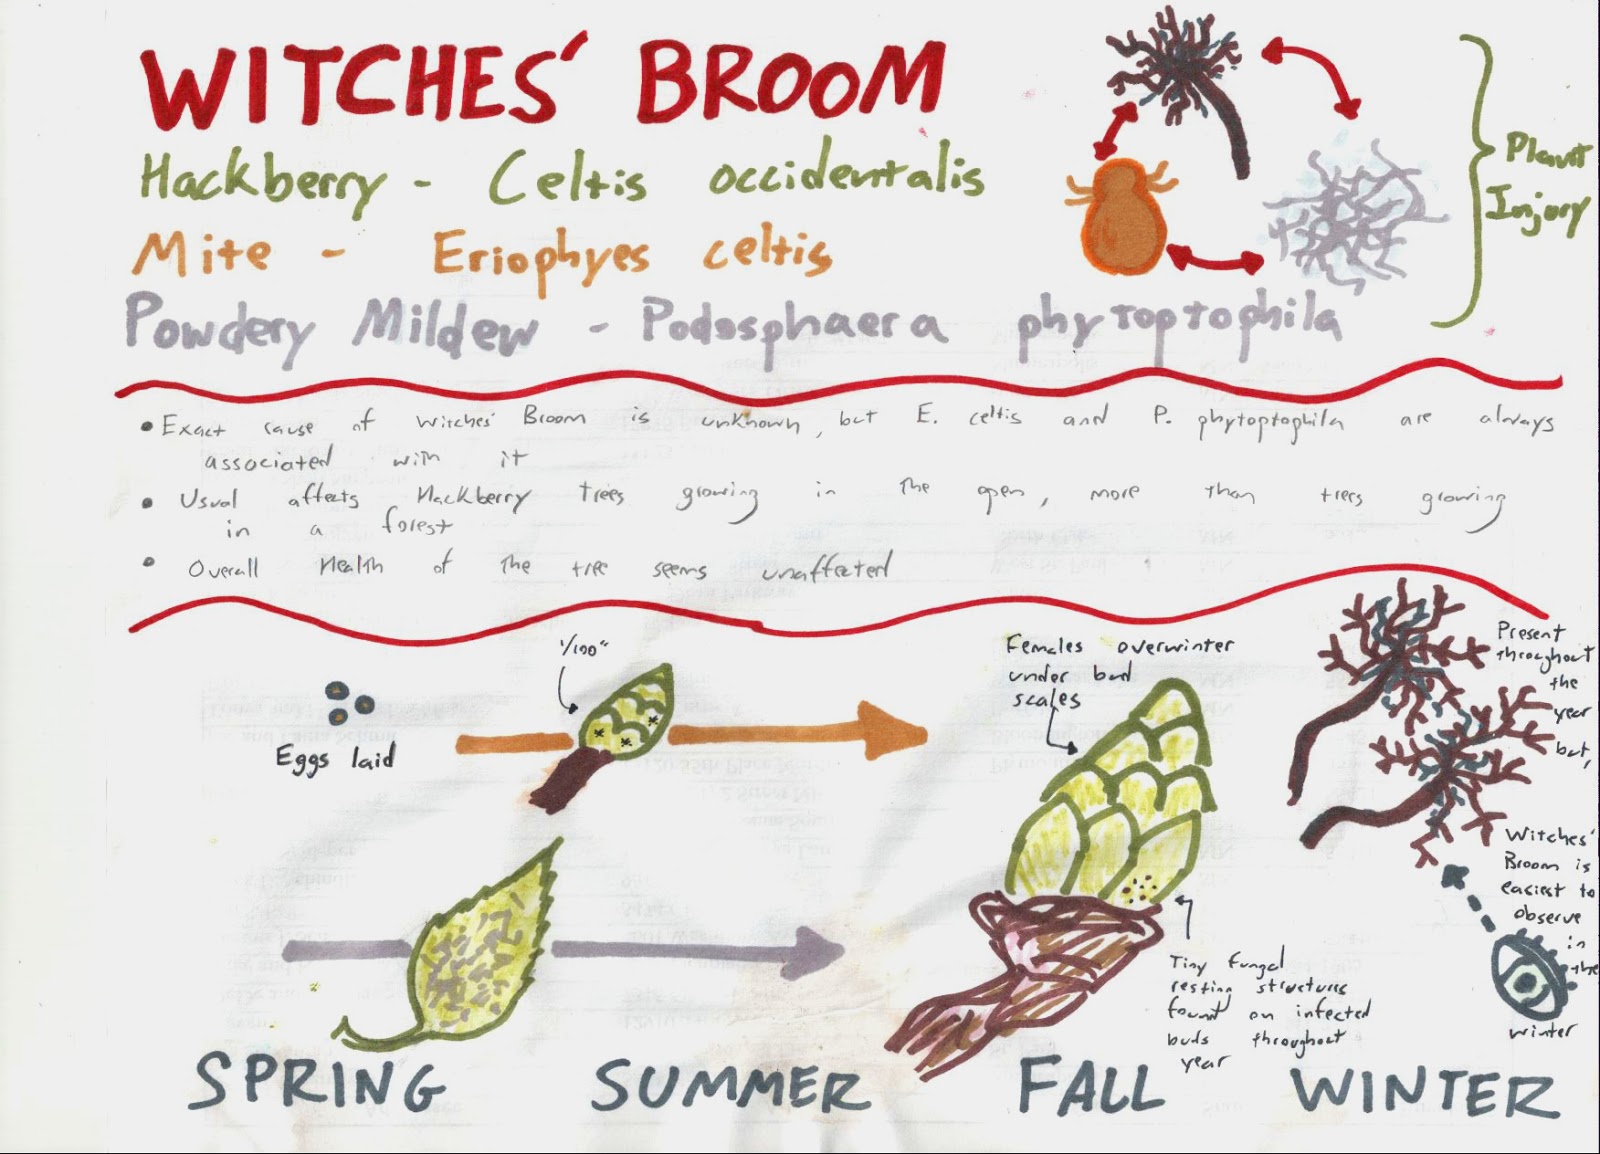 WITCHES' BROOM
Hackberry - Celtis occidentalis
Mite - Eriophyes celtis
Powdery Mildew - Podosphaera phytoptophila
Plant
Injury
• Exact cause of Witches' Broom is unknown, but E. celtis and P. phytoptophila are always
associated with it
• Usual affects Hackberry trees growing in the open, more than trees growing
in a forest
• Overall Health of the tree seems unaffected
Eggs laid
1/100"
Females overwinter
under bud
scales
Tiny fungal
resting structures
found on infected
buds throughout
year
Present
throughout
the
year
but,
Witches'
Broom is
easiest to
observe
in
the
winter
SPRING SUMMER FALL WINTER